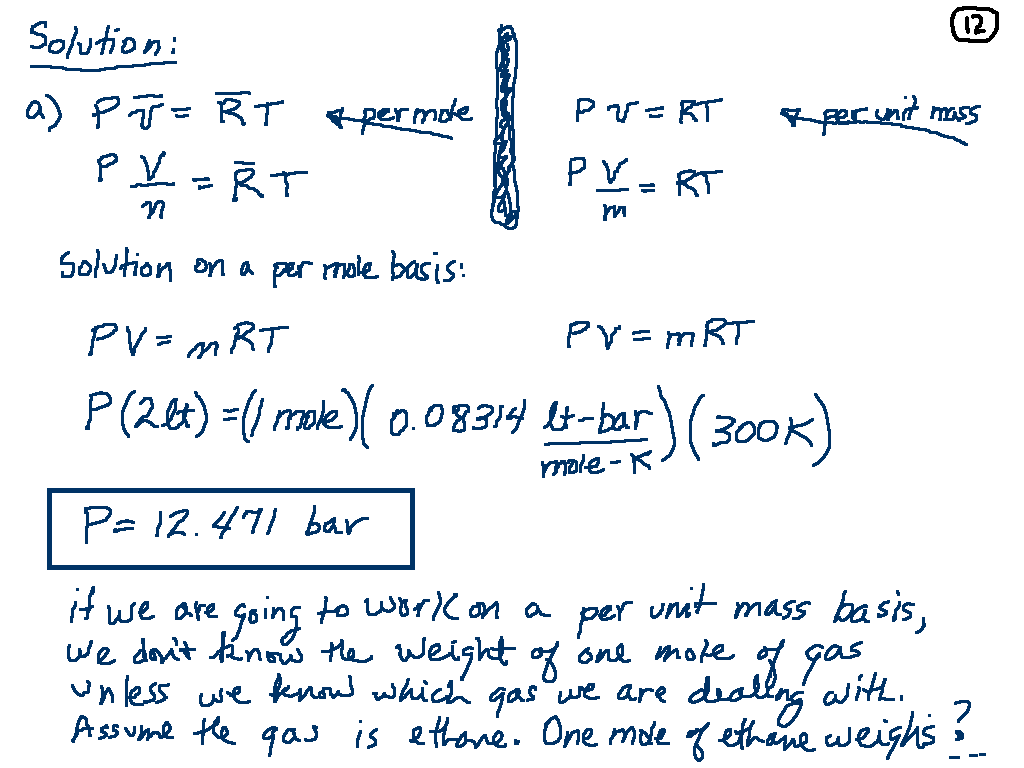 12
Solution:
a) P v̄ = R̄ T ← per mole
P V/n = R̄ T
P v = RT ← per unit mass
P V/m = RT
Solution on a per mole basis:
PV = n RT
PV = m RT
P (2 lt) = (1 mole) ( 0.08314 lt-bar/mole-K ) (300 K)
P = 12.471 bar
if we are going to work on a per unit mass basis,
we don't know the weight of one mole of gas
unless we know which gas we are dealing with.
Assume the gas is ethane. One mole of ethane weighs ?